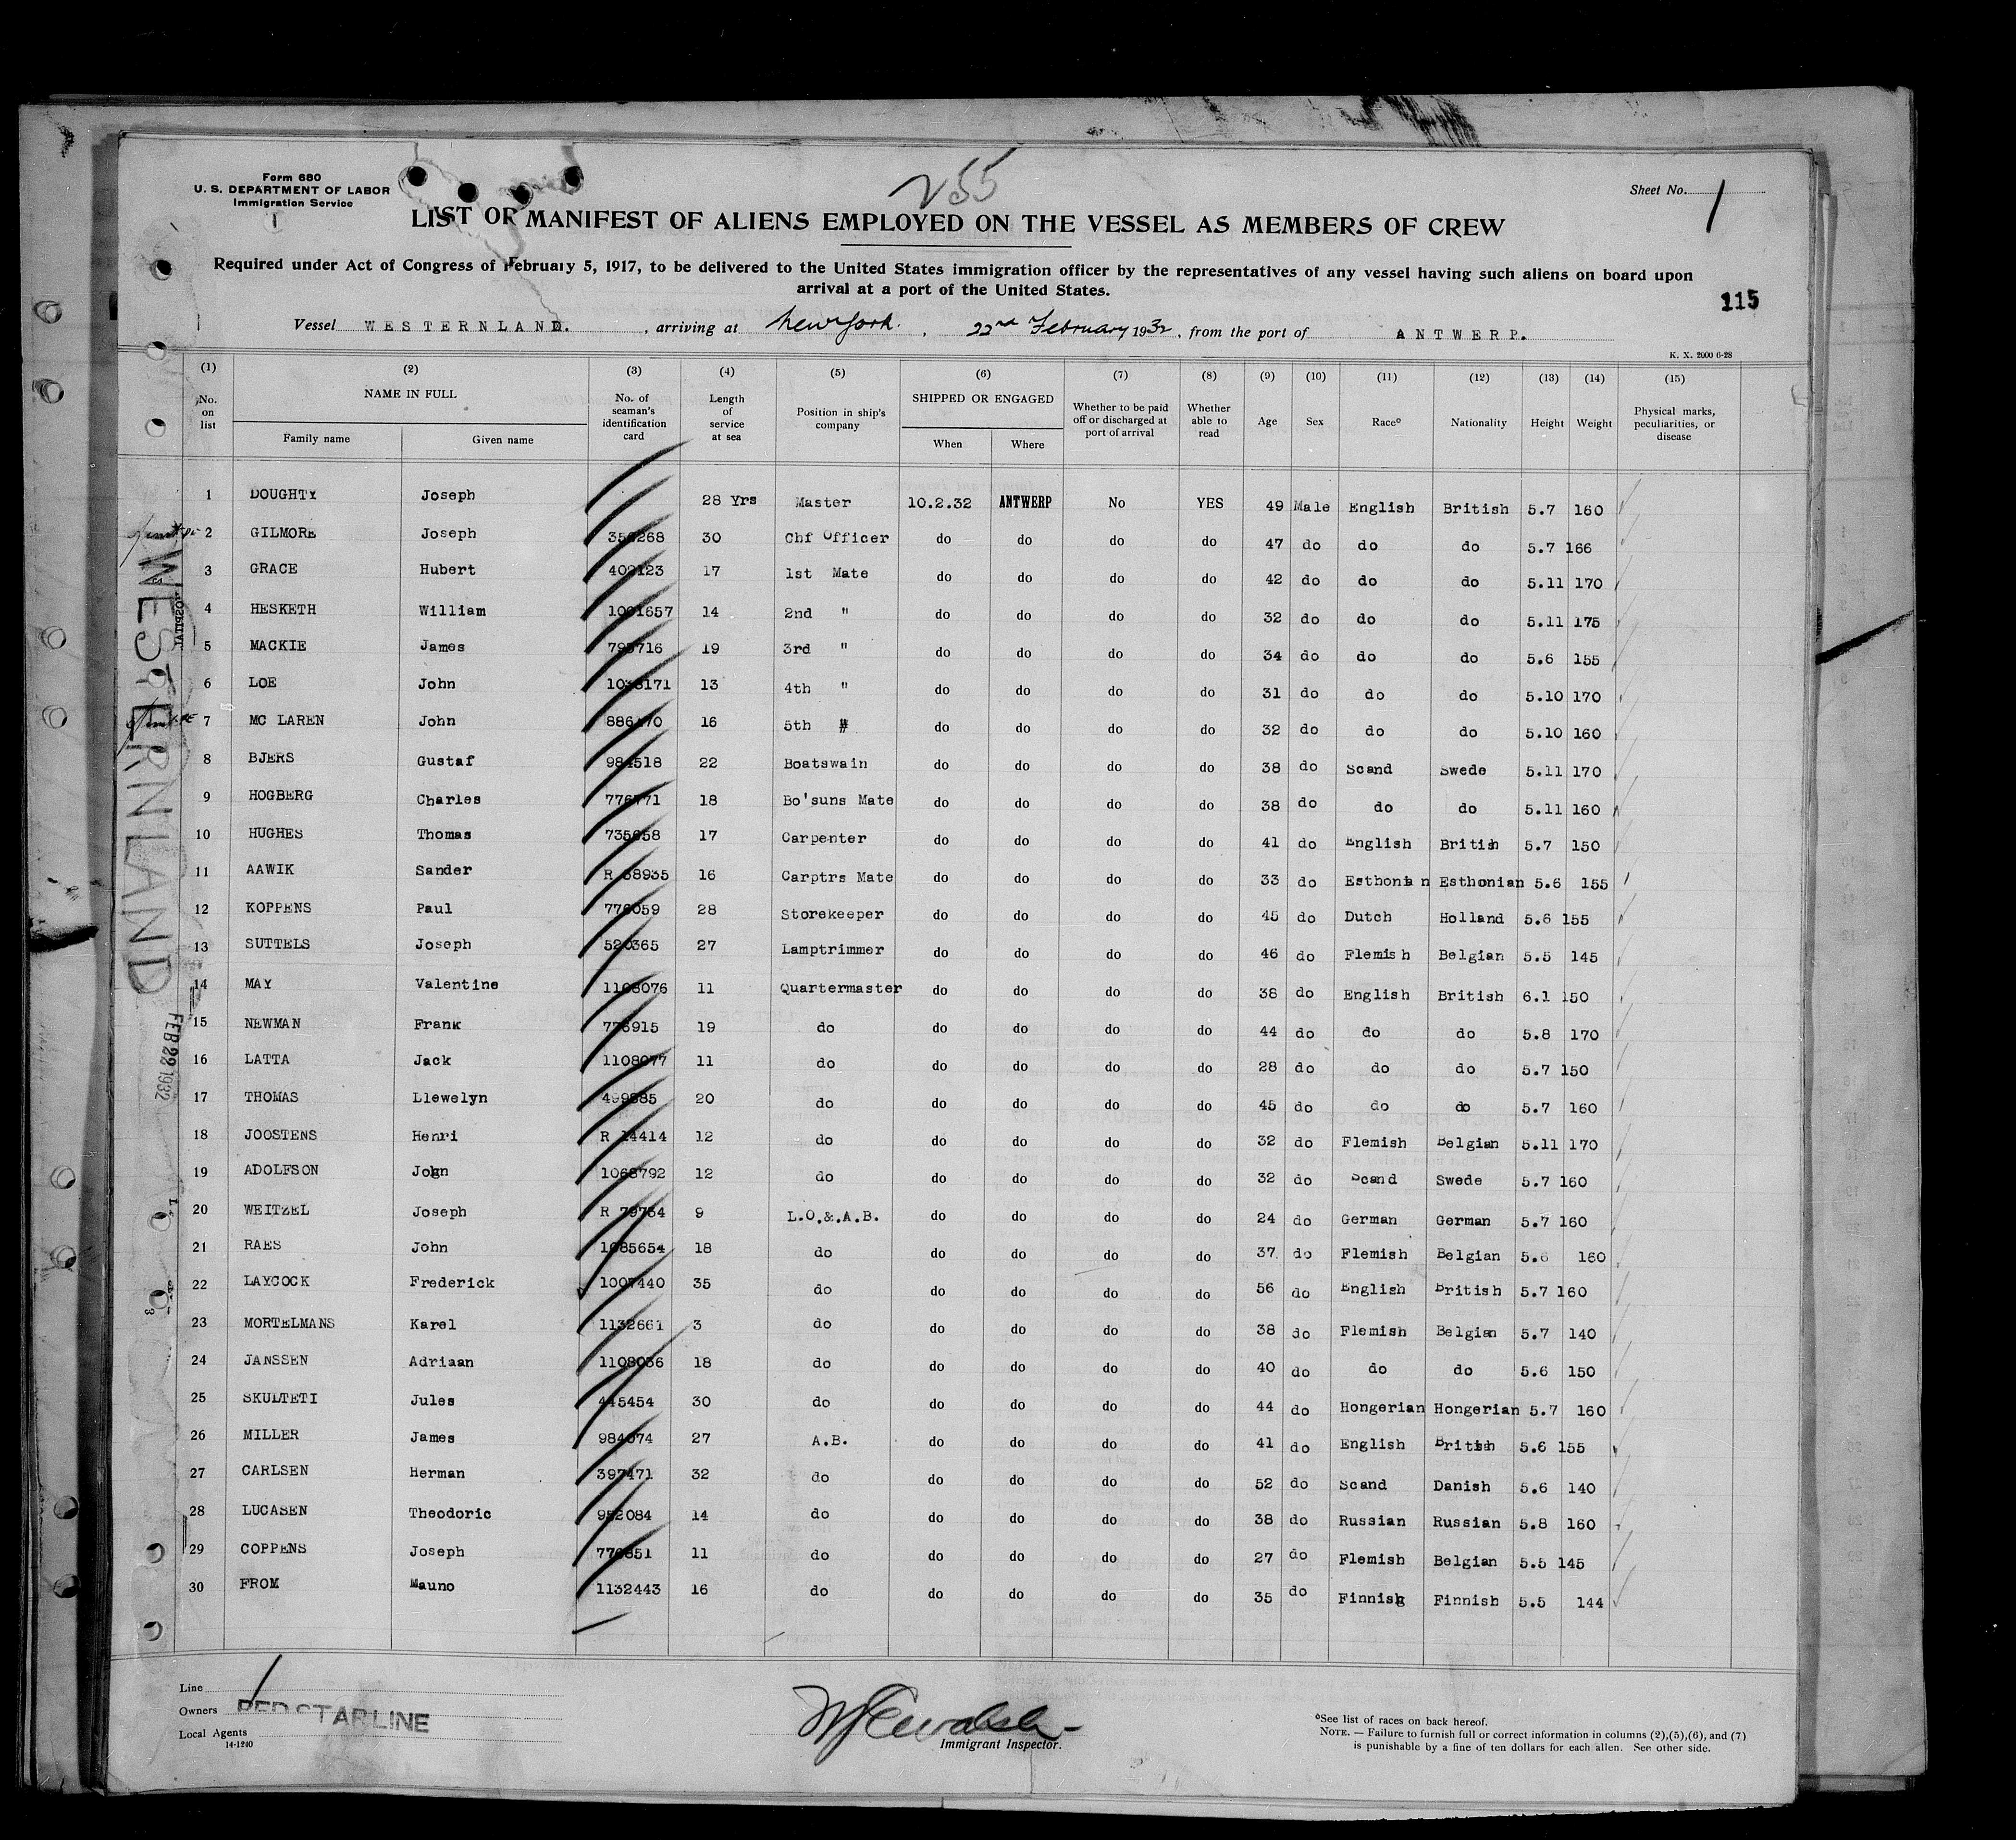 Form 680
U. S. DEPARTMENT OF LABOR
Immigration Service
255
Sheet No. 1
LIST OR MANIFEST OF ALIENS EMPLOYED ON THE VESSEL AS MEMBERS OF CREW
Required under Act of Congress of February 5, 1917, to be delivered to the United States immigration officer by the representatives of any vessel having such aliens on board upon
arrival at a port of the United States.
115
Vessel WESTERNLAND. , arriving at New York. , 22nd February 1932, from the port of ANTWERP.
K. X. 2000 6-28
(1) (2) (3) (4) (5) (6) (7) (8) (9) (10) (11) (12) (13) (14) (15)
No. on list NAME IN FULL Family name Given name No. of seaman's identification card Length of service at sea Position in ship's company SHIPPED OR ENGAGED When Where Whether to be paid off or discharged at port of arrival Whether able to read Age Sex Race° Nationality Height Weight Physical marks, peculiarities, or disease
1 DOUGHTY Joseph 28 Yrs Master 10.2.32 ANTWERP No YES 49 Male English British 5.7 160
2 GILMORE Joseph 30 Chf Officer do do do do 47 do do do 5.7 166
3 GRACE Hubert 17 1st Mate do do do do 42 do do do 5.11 170
4 HESKETH William 14 2nd " do do do do 32 do do do 5.11 175
5 MACKIE James 19 3rd " do do do do 34 do do do 5.6 155
6 LOE John 13 4th " do do do do 31 do do do 5.10 170
7 MC LAREN John 16 5th # do do do do 32 do do do 5.10 160
8 BJERS Gustaf 984518 22 Boatswain do do do do 38 do Scand Swede 5.11 170
9 HOGBERG Charles 18 Bo'suns Mate do do do do 38 do do do 5.11 160
10 HUGHES Thomas 17 Carpenter do do do do 41 do English British 5.7 150
11 AAWIK Sander 16 Carptrs Mate do do do do 33 do Esthonian Esthonian 5.6 155
12 KOPPENS Paul 28 Storekeeper do do do do 45 do Dutch Holland 5.6 155
13 SUTTELS Joseph 520365 27 Lamptrimmer do do do do 46 do Flemish Belgian 5.5 145
14 MAY Valentine 1108076 11 Quartermaster do do do do 38 do English British 6.1 150
15 NEWMAN Frank 19 do do do do do 44 do do do 5.8 170
16 LATTA Jack 1108077 11 do do do do do 28 do do do 5.7 150
17 THOMAS Llewelyn 20 do do do do do 45 do do do 5.7 160
18 JOOSTENS Henri R 14414 12 do do do do do 32 do Flemish Belgian 5.11 170
19 ADOLFSON John 1068792 12 do do do do do 32 do Scand Swede 5.7 160
20 WEITZEL Joseph 9 L.O.&.A.B. do do do do 24 do German German 5.7 160
21 RAES John 1085654 18 do do do do do 37 do Flemish Belgian 5.6 160
22 LAYCOCK Frederick 1007440 35 do do do do do 56 do English British 5.7 160
23 MORTELMANS Karel 1132661 3 do do do do do 38 do Flemish Belgian 5.7 140
24 JANSSEN Adriaan 1108036 18 do do do do do 40 do do do 5.6 150
25 SKULTETI Jules 445454 30 do do do do do 44 do Hongerian Hongerian 5.7 160
26 MILLER James 984074 27 A.B. do do do do 41 do English British 5.6 155
27 CARLSEN Herman 397471 32 do do do do do 52 do Scand Danish 5.6 140
28 LUCASEN Theodoric 952084 14 do do do do do 38 do Russian Russian 5.8 160
29 COPPENS Joseph 11 do do do do do 27 do Flemish Belgian 5.5 145
30 FROM Mauno 1132443 16 do do do do do 35 do Finnish Finnish 5.5 144
WESTERNLAND
HOSPITAL
FEB 22 1932
Line
Owners RED STAR LINE
Local Agents
14-1240
Immigrant Inspector.
°See list of races on back hereof.
NOTE. — Failure to furnish full or correct information in columns (2),(5),(6), and (7)
is punishable by a fine of ten dollars for each alien. See other side.